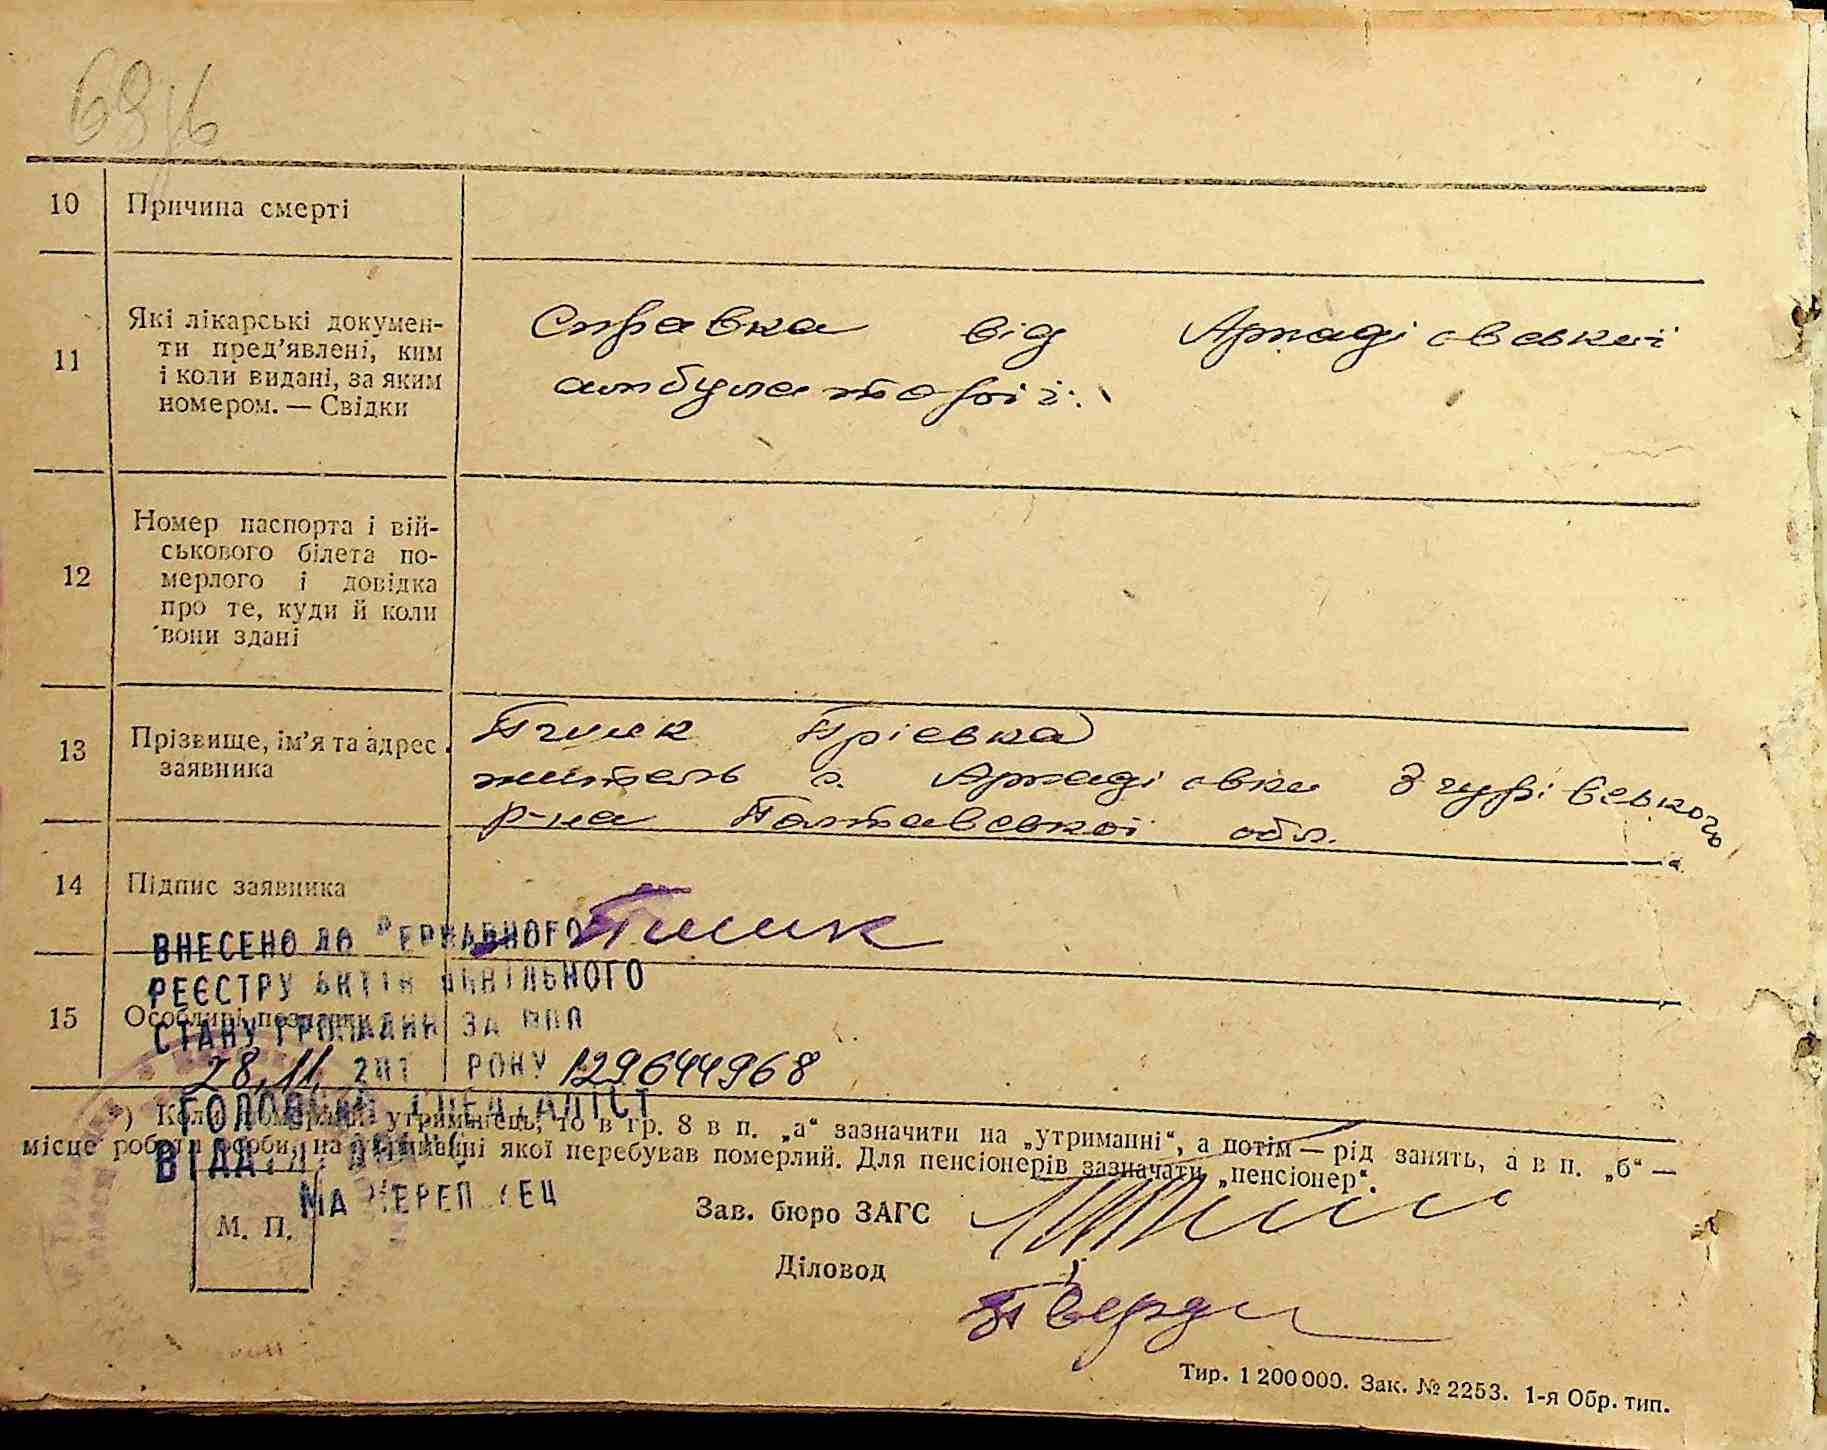 10 Причина смерті
11 Які лікарські докумен-
ти пред'явлені, ким
і коли видані, за яким
номером. — Свідки
Справка від Аркадіовської
амбулаторії.
12 Номер паспорта і вій-
ськового білета по-
мерлого і довідка
про те, куди й коли
вони здані
13 Прізвище, ім'я та адрес
заявника
житель с. Аркадіовка Згурівського
р-на Полтавської обл.
14 Підпис заявника
ВНЕСЕНО ДО ДЕРЖАВНОГО
РЕЄСТРУ АКТІВ ЦИВІЛЬНОГО
15 Особливі позначки
СТАНУ ГРОМАДЯН ЗА
28.11. РОКУ 129644968
ГОЛОВНИЙ СПЕЦІАЛІСТ
*) Коли померлий утриманець, то в гр. 8 в п. „а“ зазначити на „утриманні“, а потім — рід занять, а в п. „б“ —
місце роботи особи, на утриманні якої перебував померлий. Для пенсіонерів зазначати „пенсіонер“.
М. П.
Зав. бюро ЗАГС
Діловод
Тир. 1 200 000. Зак. № 2253. 1-я Обр. тип.